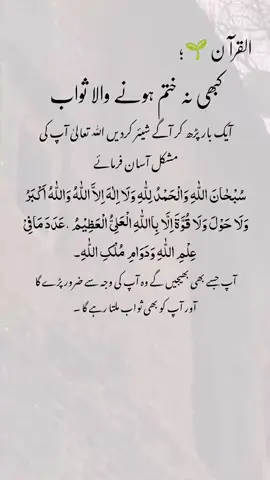 القرآن 🌱 ؛
کبھی نہ ختم ہونے والا ثواب
ایک بار پڑھ کر آگے شیئر کردیں اللہ تعالیٰ آپ کی
مشکل آسان فرمائے
سُبْحَانَ اللّٰهِ وَالْحَمْدُ لِلّٰهِ وَلَا اِلٰهَ اِلاَّ اللّٰهُ وَاللّٰهُ اَكْبَرُ
وَلَا حَوْلَ وَلَا قُوَّةَ اِلَّا بِاللّٰهِ الْعَلِىُّ الْعَظِيْمُ ،عَدَدَ مَا فِىْ
عِلْمِ اللّٰهِ وَدَوَامِ مُلْكِ اللّٰهِ۔
آپ جسے بھی بھیجیں گے وہ آپ کی وجہ سے ضرور پڑے گا
اور آپ کو بھی ثواب ملتا رہے گا ۔